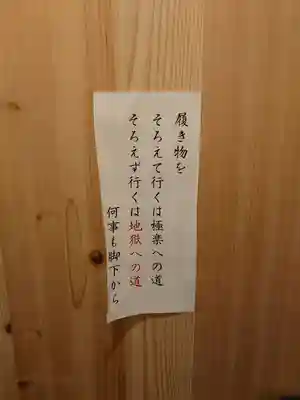 履き物を
そろえて行くは極楽への道
そろえず行くは地獄への道
何事も脚下から